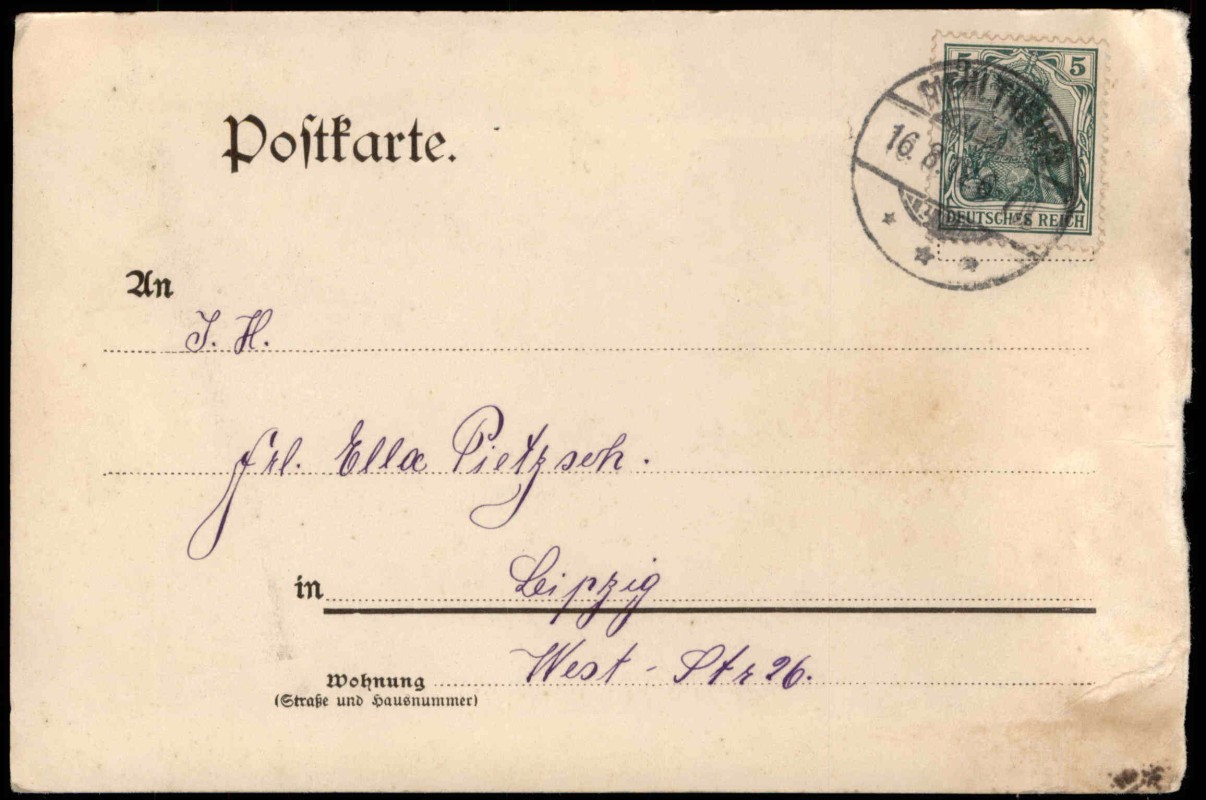 Postkarte.
5 5
16.8.
DEUTSCHES REICH
An
J. H.
Frl. Ella Pietzsch.
in Leipzig
West-Str 26.
Wohnung
(Straße und Hausnummer)